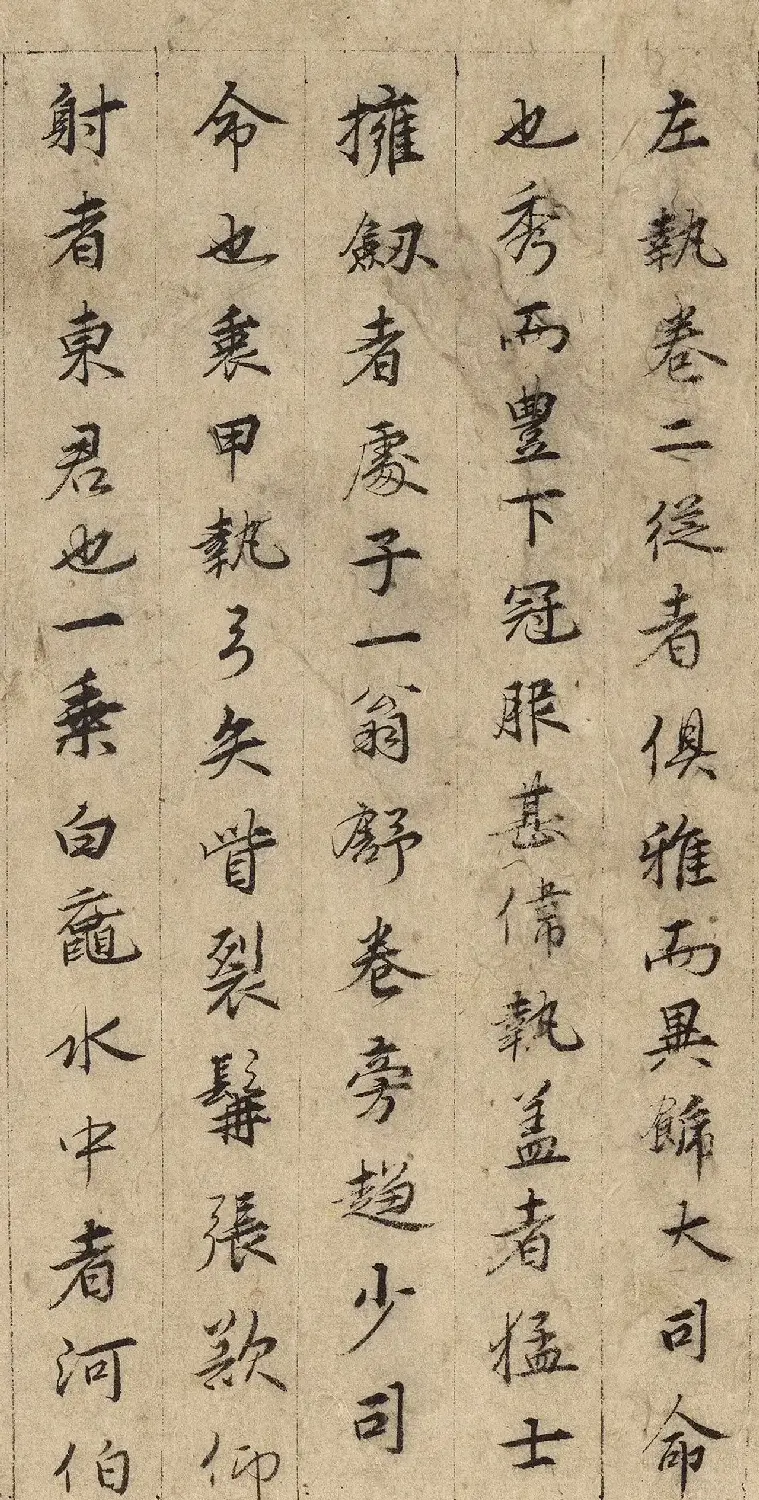 左執卷二從者俱雅而異飾大司命
也秀而豐下冠服甚偉執蓋者猛士
擁劔者處子一翁舒卷旁趨少司
命也裹甲執弓矢眥裂髯張欲仰
射者東君也一乗白黿水中者河伯